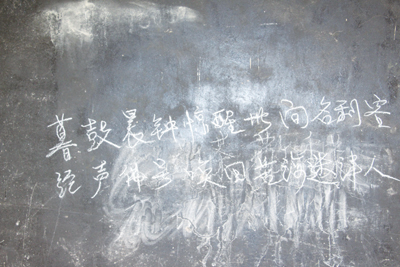 暮鼓晨钟惊醒世间名利客
经声佛号唤回苦海迷津人